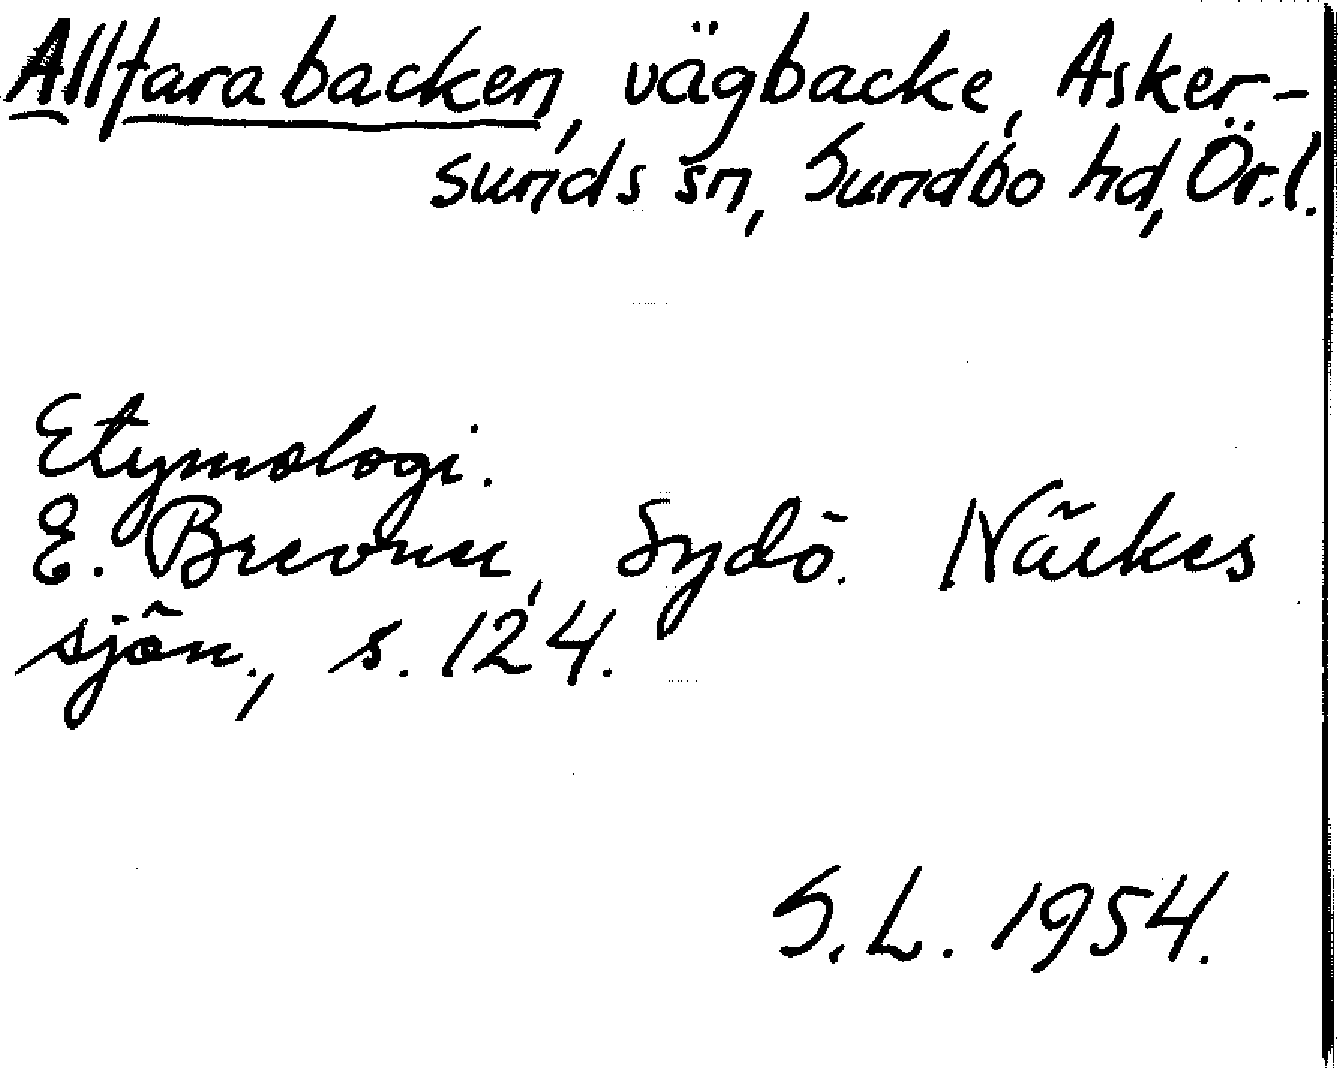 Allfarabacken, vägbacke, Asker-
sunds sn, Sundbo hd, Ör. l.
Etymologi.
E. Brevner, Sydö. Närkes
sjön., s. 124.
S. L. 1954.